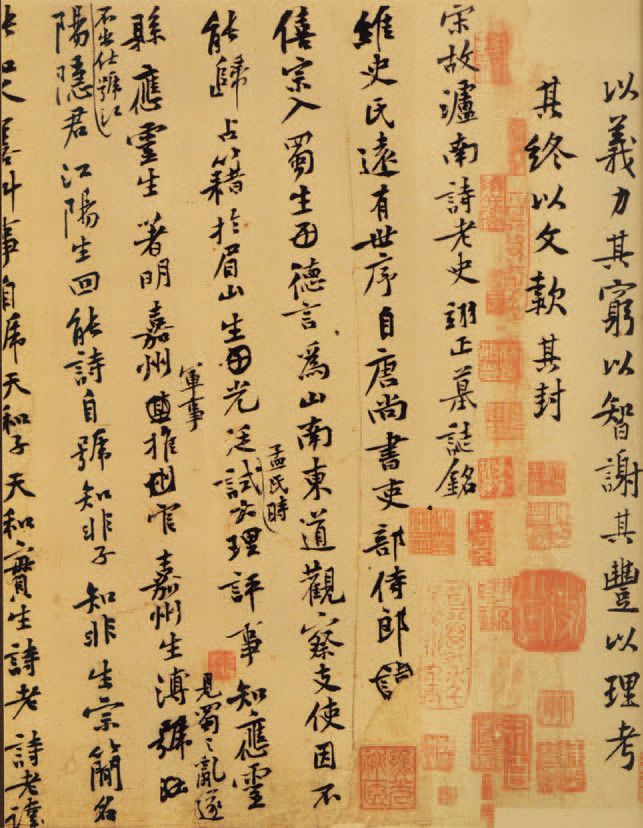 以義力其窮以智謝其豐以理考
其終以文款其封
宋故瀘南詩老史翊正墓誌銘
維史氏遠有世序自唐尚書吏部侍郎
僖宗入蜀生德言為山南東道觀察支使因不
孟氏時
能歸占籍於眉山生光廷試大理評事知應靈
軍事
見蜀之亂遂
縣應靈生著明嘉州推官嘉州生溥號江
不出仕號江
陽隱君江陽生回能詩自號知非子知非生宗簡名
喜事自席天和子天和實生詩老詩老諱